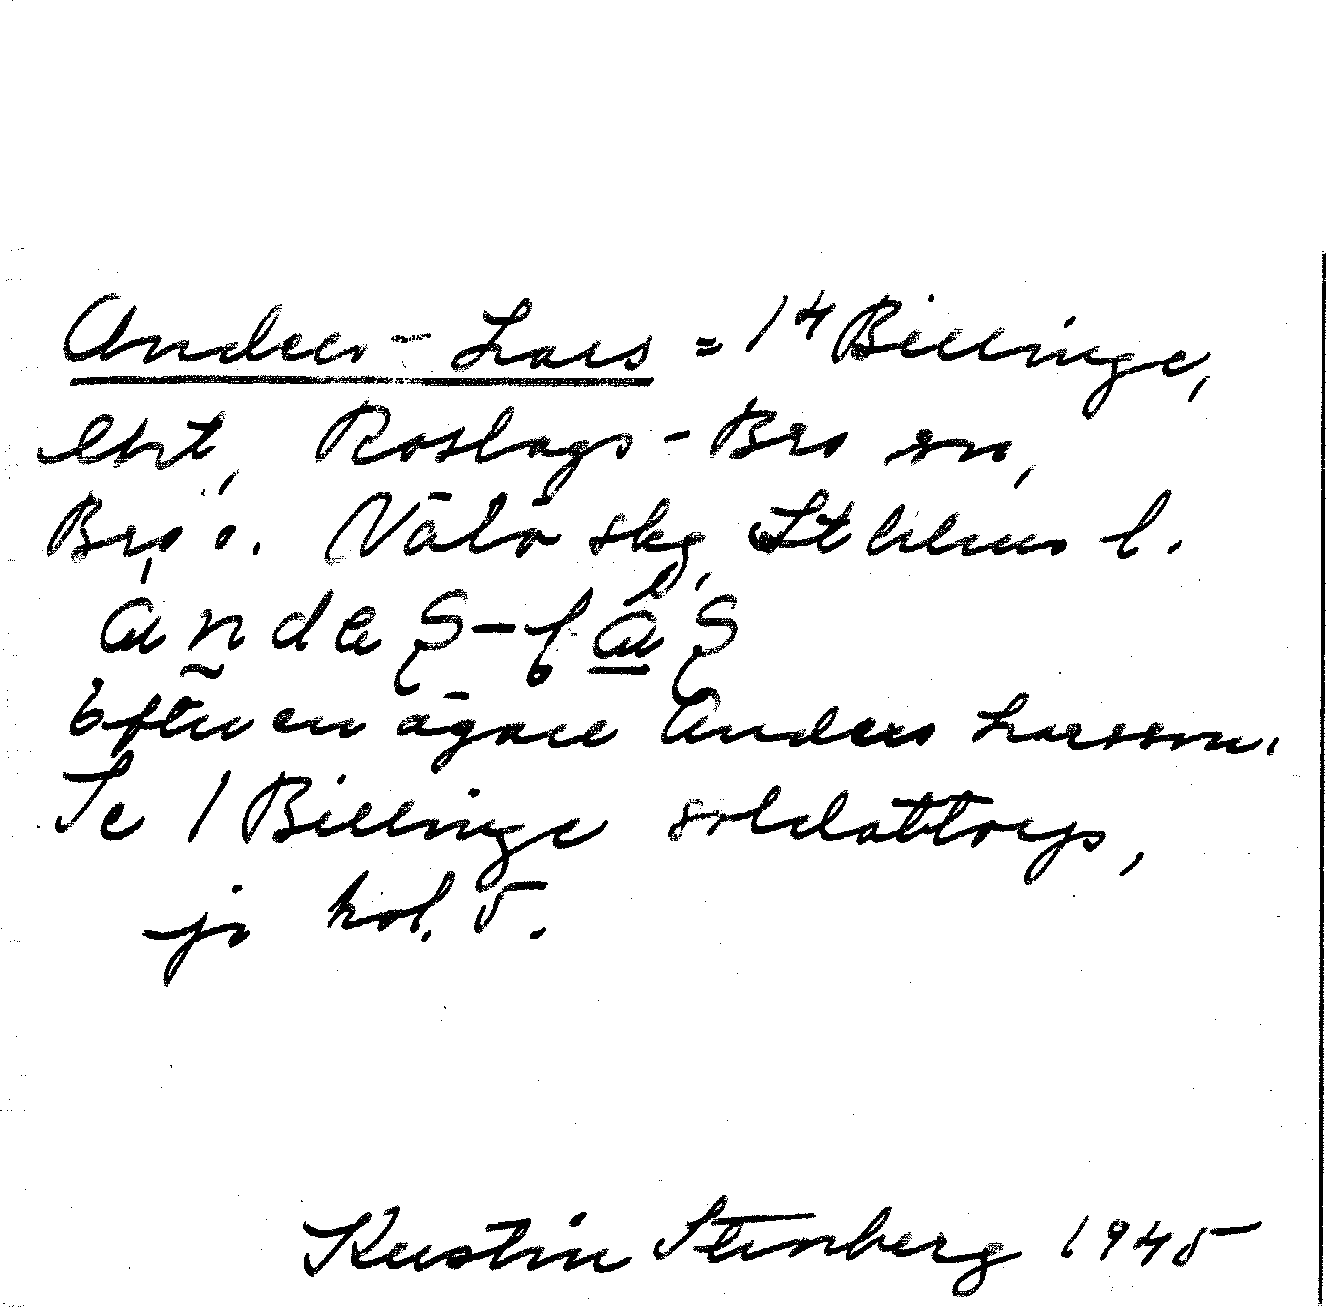 Anders-Lars = 1⁴ Billinge,
Roslags-Bro sn,
Bro o. Vätö skg, Sthlms l.
Efter en ägare Anders Larsson.
Se 1 Billinge soldattorp,
jb kol. 5.
Kerstin Stenberg 1945